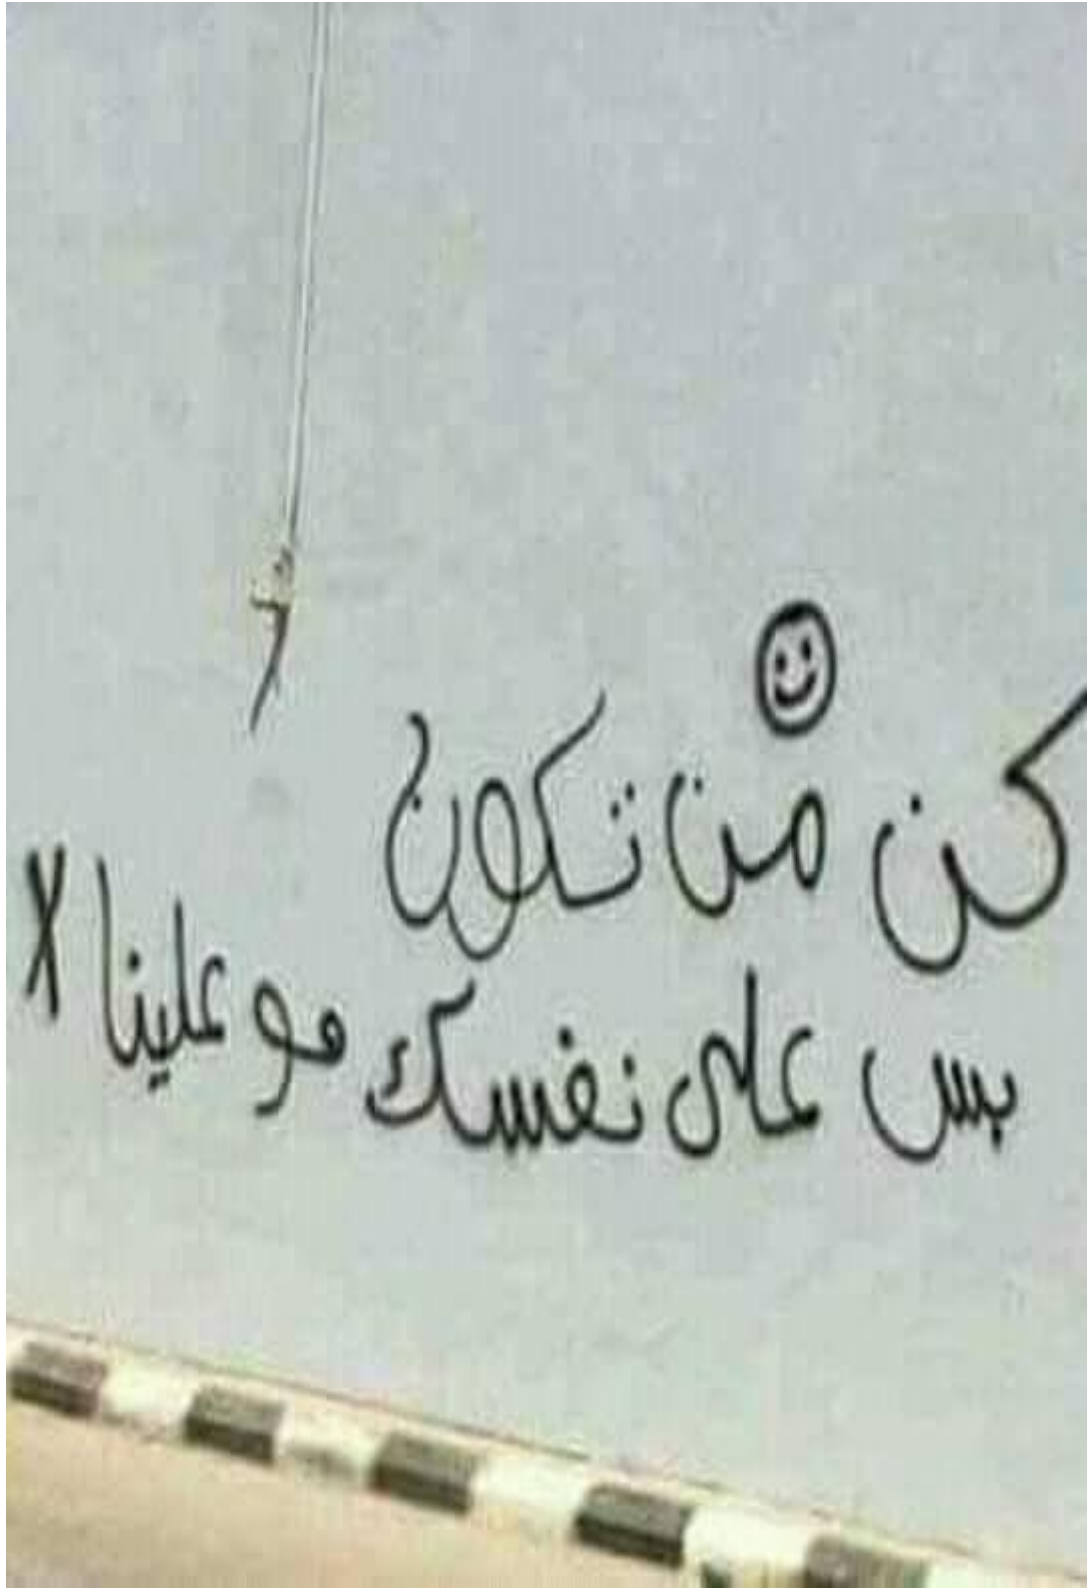 كن من تكون
بس على نفسك مو علينا X